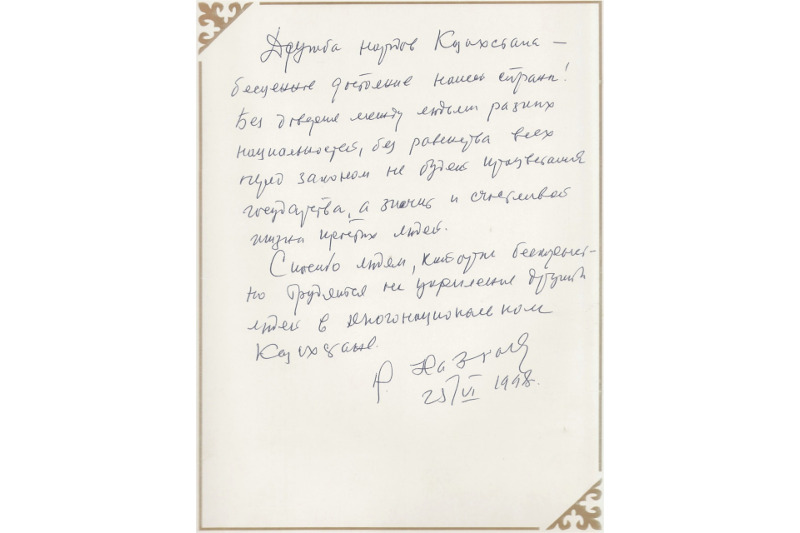 Дружба народов Казахстана –
бесценное достояние нашей страны!
Без доверия между людьми разных
национальностей, без равенства всех
перед законом не будет процветания
государства, а значит и счастливой
жизни простых людей.
Спасибо людям, которые бескорыст-
но трудятся на укрепление дружбы
людей в многонациональном
Казахстане.
25/VI 1998.